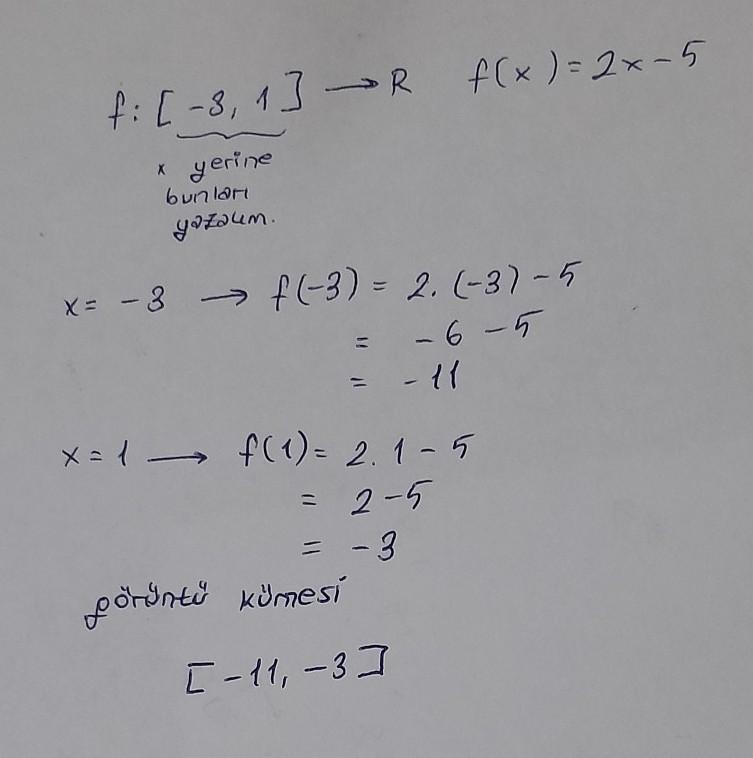 f: [ -3, 1 ] → R f(x) = 2x - 5
x yerine
bunları
yazalım.
x = -3 → f(-3) = 2. (-3) - 5
= -6 - 5
= -11
x = 1 → f(1) = 2. 1 - 5
= 2 - 5
= -3
görüntü kümesi
[ -11, -3 ]